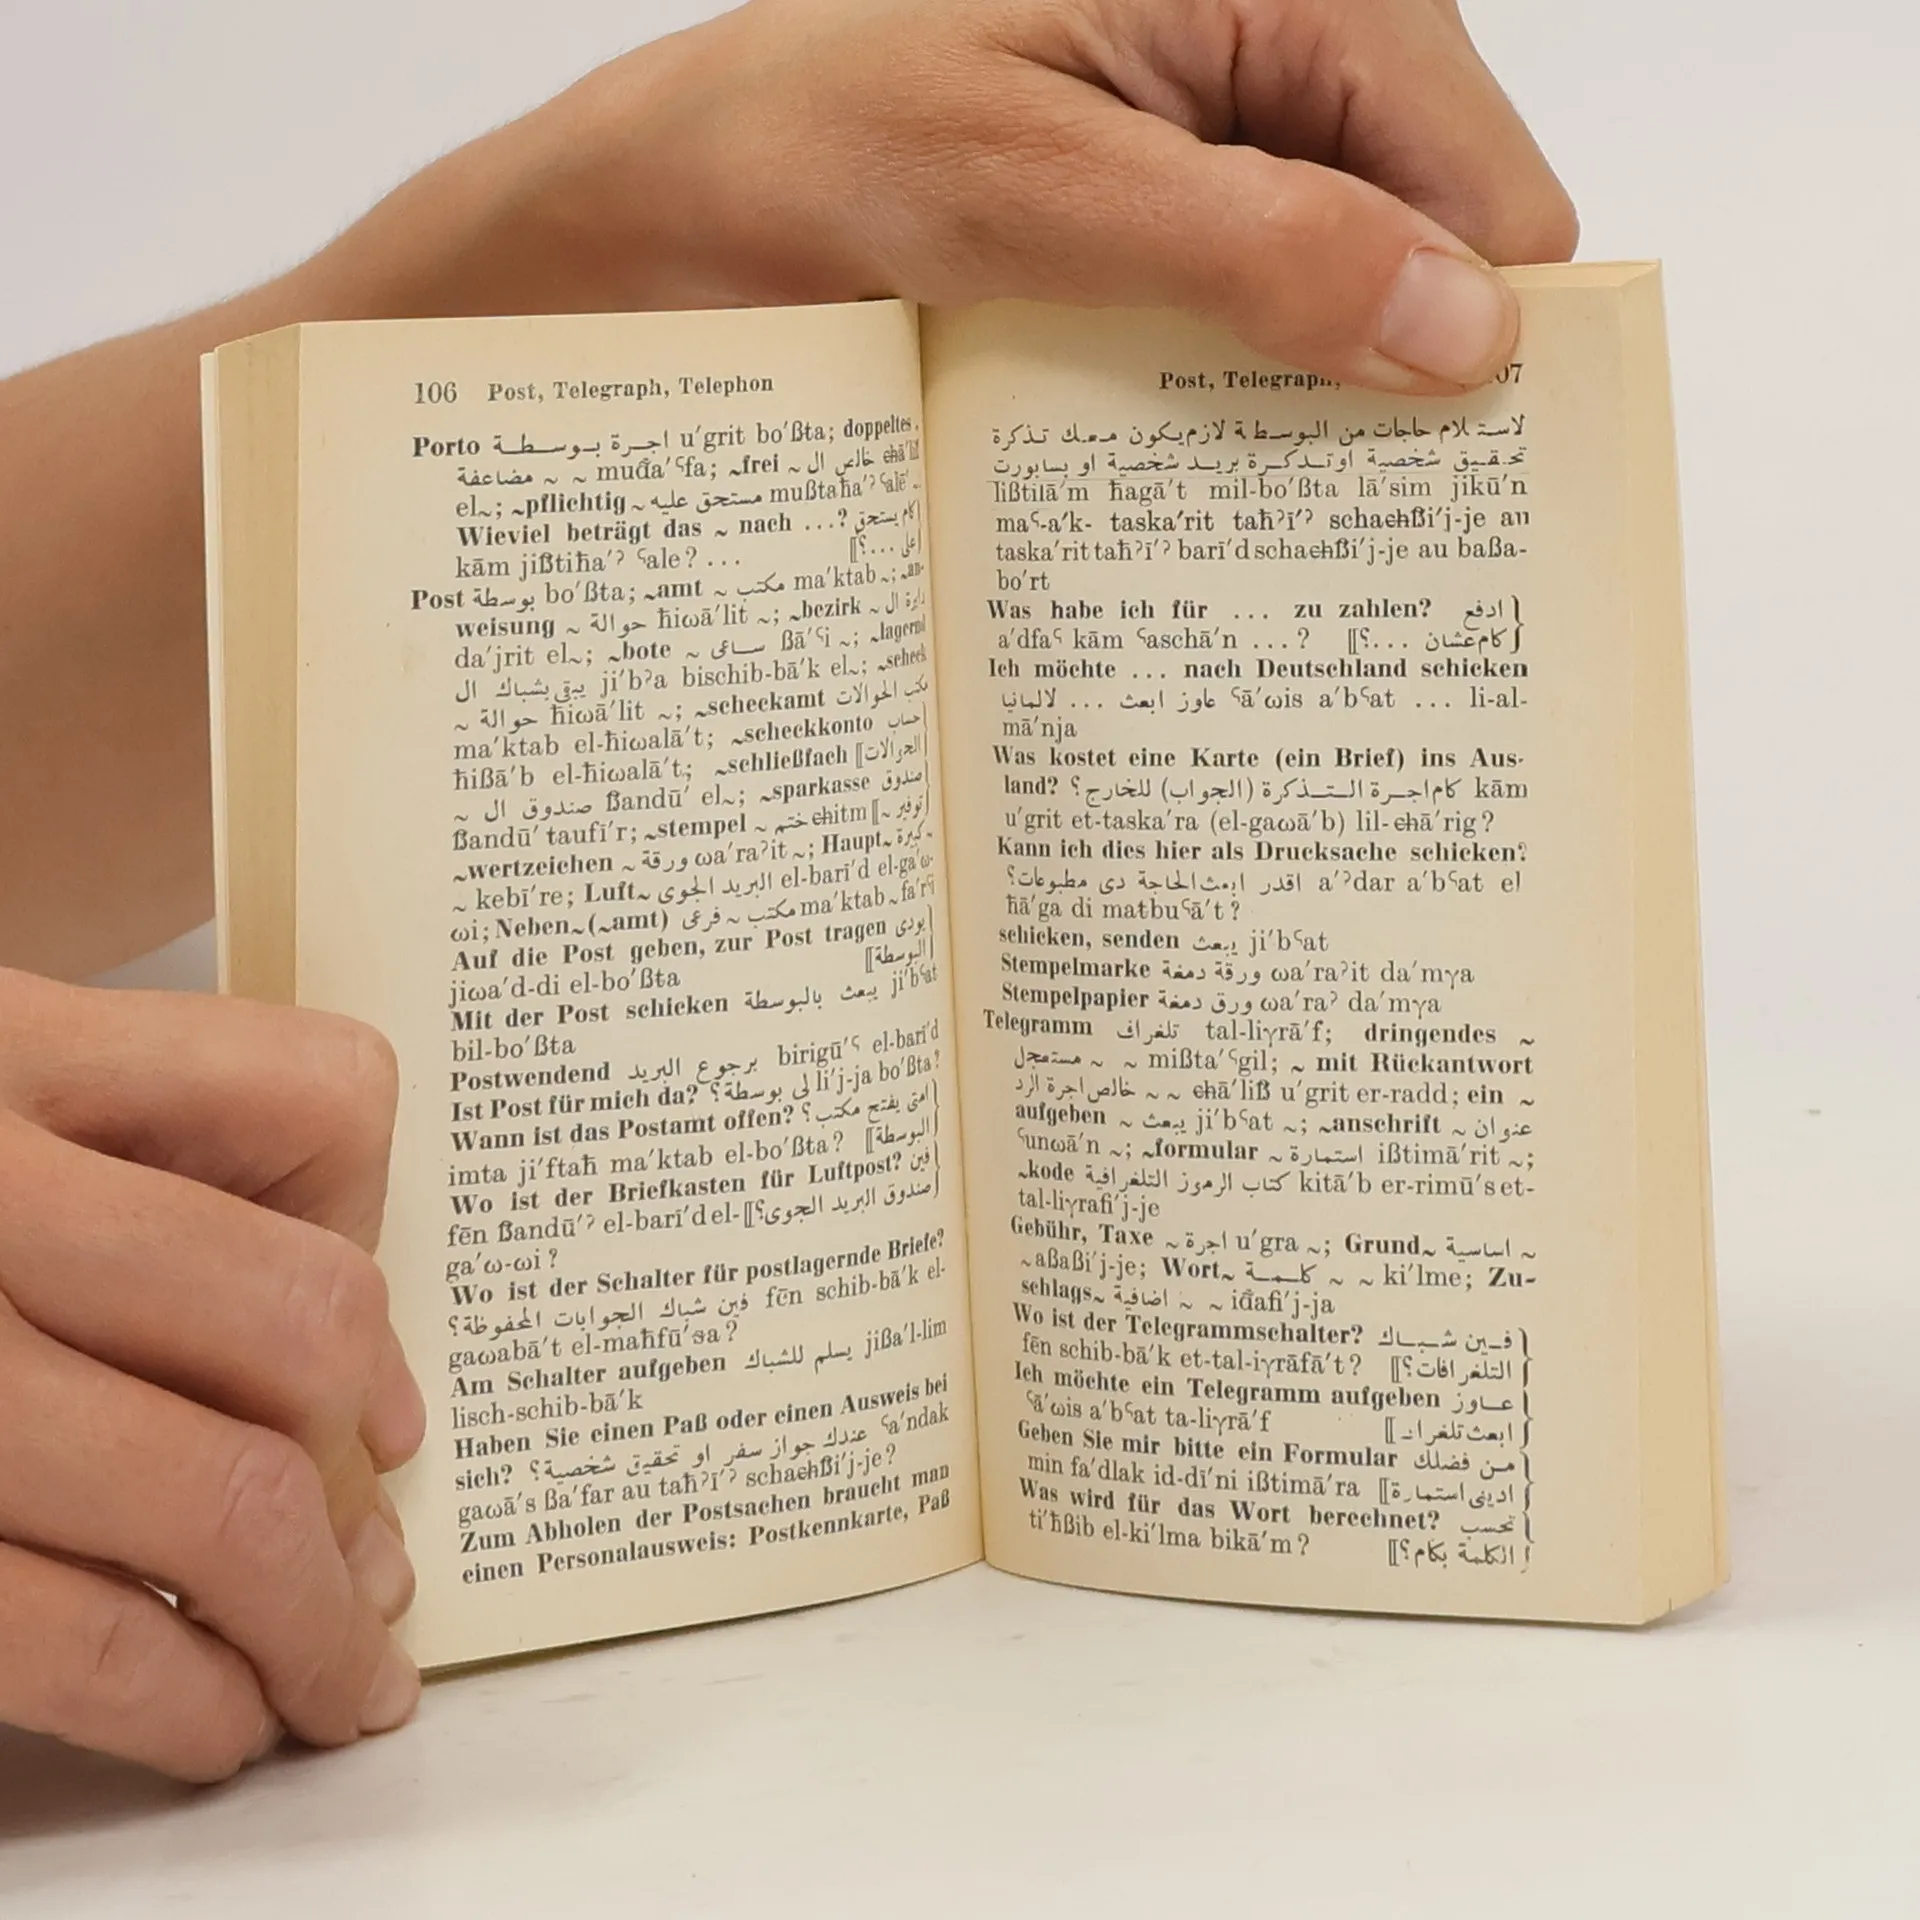 106 Post, Telegraph, Telephon
Porto اجرة بوسطة u′grit bo′ßta; doppeltes
مضاعفة ~ ~ muđa′ʕfa; ~frei ~ خالص ال chā′liß
el~; ~pflichtig ~ مستحق عليه mußtaħa′ʾ ʕalē′
Wieviel beträgt das ~ nach ...? كام يستحق
kām jißtiħa′ʾ ʕale? ... على ...؟⟧
Post بوسطة bo′ßta; ~amt ~ مكتب ma′ktab ~; ~an-
weisung ~ حوالة ħiωā′lit ~; ~bezirk ~ دايرة ال
da′jrit el~; ~bote ~ ساعى ßā′ʕi ~; ~lagernd
يبقى بشباك ال ji′bʾa bischib-bā′k el~; ~scheck
~ حوالة ħiωā′lit ~; ~scheckamt مكتب الحوالات
ma′ktab el-ħiωalā′t; ~scheckkonto حساب
ħißā′b el-ħiωalā′t; ~schließfach ⟦الحوالات
~ صندوق ال ßandū′ el~; ~sparkasse صندوق
ßandū′ taufī′r; ~stempel ~ ختم chitm ⟦~ توفير
~wertzeichen ~ ورقة ωa′raʾit ~; Haupt~ كبيرة ~
~ kebī′re; Luft~ البريد الجوى el-barī′d el-ga′ω-
ωi; Neben~ (~amt) مكتب ~ فرعى ma′ktab ~ fa′rʕi
Auf die Post geben, zur Post tragen يودى
jiωa′d-di el-bo′ßta البوسطة⟧
Mit der Post schicken يبعث بالبوسطة ji′bʕat
bil-bo′ßta
Postwendend برجوع البريد birigū′ʕ el-barī′d
Ist Post für mich da? لى بوسطة؟ li′j-ja bo′ßta?
Wann ist das Postamt offen? امتى يفتح مكتب؟
imta ji′ftaħ ma′ktab el-bo′ßta? البوسطة⟧
Wo ist der Briefkasten für Luftpost? فين
fēn ßandū′ʾ el-barī′d el-⟦صندوق البريد الجوى؟
ga′ω-ωi?
Wo ist der Schalter für postlagernde Briefe?
فين شباك الجوابات المحفوظة؟ fēn schib-bā′k el-
gaωabā′t el-maħfū′sa?
Am Schalter aufgeben يسلم للشباك jißa′l-lim
lisch-schib-bā′k
Haben Sie einen Paß oder einen Ausweis bei
sich? عندك جواز سفر او تحقيق شخصية؟ ʕa′ndak
gaωā′s ßa′far au taħʾī′ʾ schachßi′j-je?
Zum Abholen der Postsachen braucht man
einen Personalausweis: Postkennkarte, Paß
Post, Telegraph, 07
لاستلام حاجات من البوسطة لازم يكون معك تذكرة
تحقيق شخصية او تذكرة بريد شخصية او بسابورت
lißtilā′m ħagā′t mil-bo′ßta lā′sim jikū′n
maʕ-a′k- taska′rit taħʾī′ʾ schachßi′j-je au
taska′rit taħʾī′ʾ barī′d schachßi′j-je au baßa-
bo′rt
Was habe ich für ... zu zahlen? ادفع
a′dfaʕ kām ʕaschā′n ...? ⟦كام عشان ...؟
Ich möchte ... nach Deutschland schicken
عاوز ابعث ... لالمانيا ʕā′ωis a′bʕat ... li-al-
mā′nja
Was kostet eine Karte (ein Brief) ins Aus-
land? كام اجرة التذكرة (الجواب) للخارج؟ kām
u′grit et-taska′ra (el-gaωā′b) lil-chā′rig?
Kann ich dies hier als Drucksache schicken?
اقدر ابعث الحاجة دى مطبوعات؟ a′ʾdar a′bʕat el
ħā′ga di matbuʕā′t?
schicken, senden يبعث ji′bʕat
Stempelmarke ورقة دمغة ωa′raʾit da′mγa
Stempelpapier ورق دمغة ωa′raʾ da′mγa
Telegramm تلغراف tal-liγrā′f; dringendes ~
مستعجل ~ ~ mißta′ʕgil; ~ mit Rückantwort
خالص اجرة الرد ~ ~ chā′liß u′grit er-radd; ein ~
aufgeben ~ يبعث ji′bʕat ~; ~anschrift ~ عنوان
ʕunωā′n ~; ~formular ~ استمارة ißtimā′rit ~;
~kode كتاب الرموز التلغرافية kitā′b er-rimū′s et-
tal-liγrafi′j-je
Gebühr, Taxe ~ اجرة u′gra ~; Grund~ اساسية ~
~aßaßi′j-je; Wort~ كلمة ~ ~ ki′lme; Zu-
schlags~ اضافية ~ ~ iđafi′j-ja
Wo ist der Telegrammschalter? فين شباك
fēn schib-bā′k et-tal-iγrāfā′t? ⟦التلغرافات؟
Ich möchte ein Telegramm aufgeben عاوز
ʕā′ωis a′bʕat ta-liγrā′f ⟦ابعث تلغراف
Geben Sie mir bitte ein Formular من فضلك
min fa′dlak id-dī′ni ißtimā′ra ⟦ادينى استمارة
Was wird für das Wort berechnet? تحسب
ti′ħßib el-ki′lma bikā′m? ⟦الكلمة بكام؟